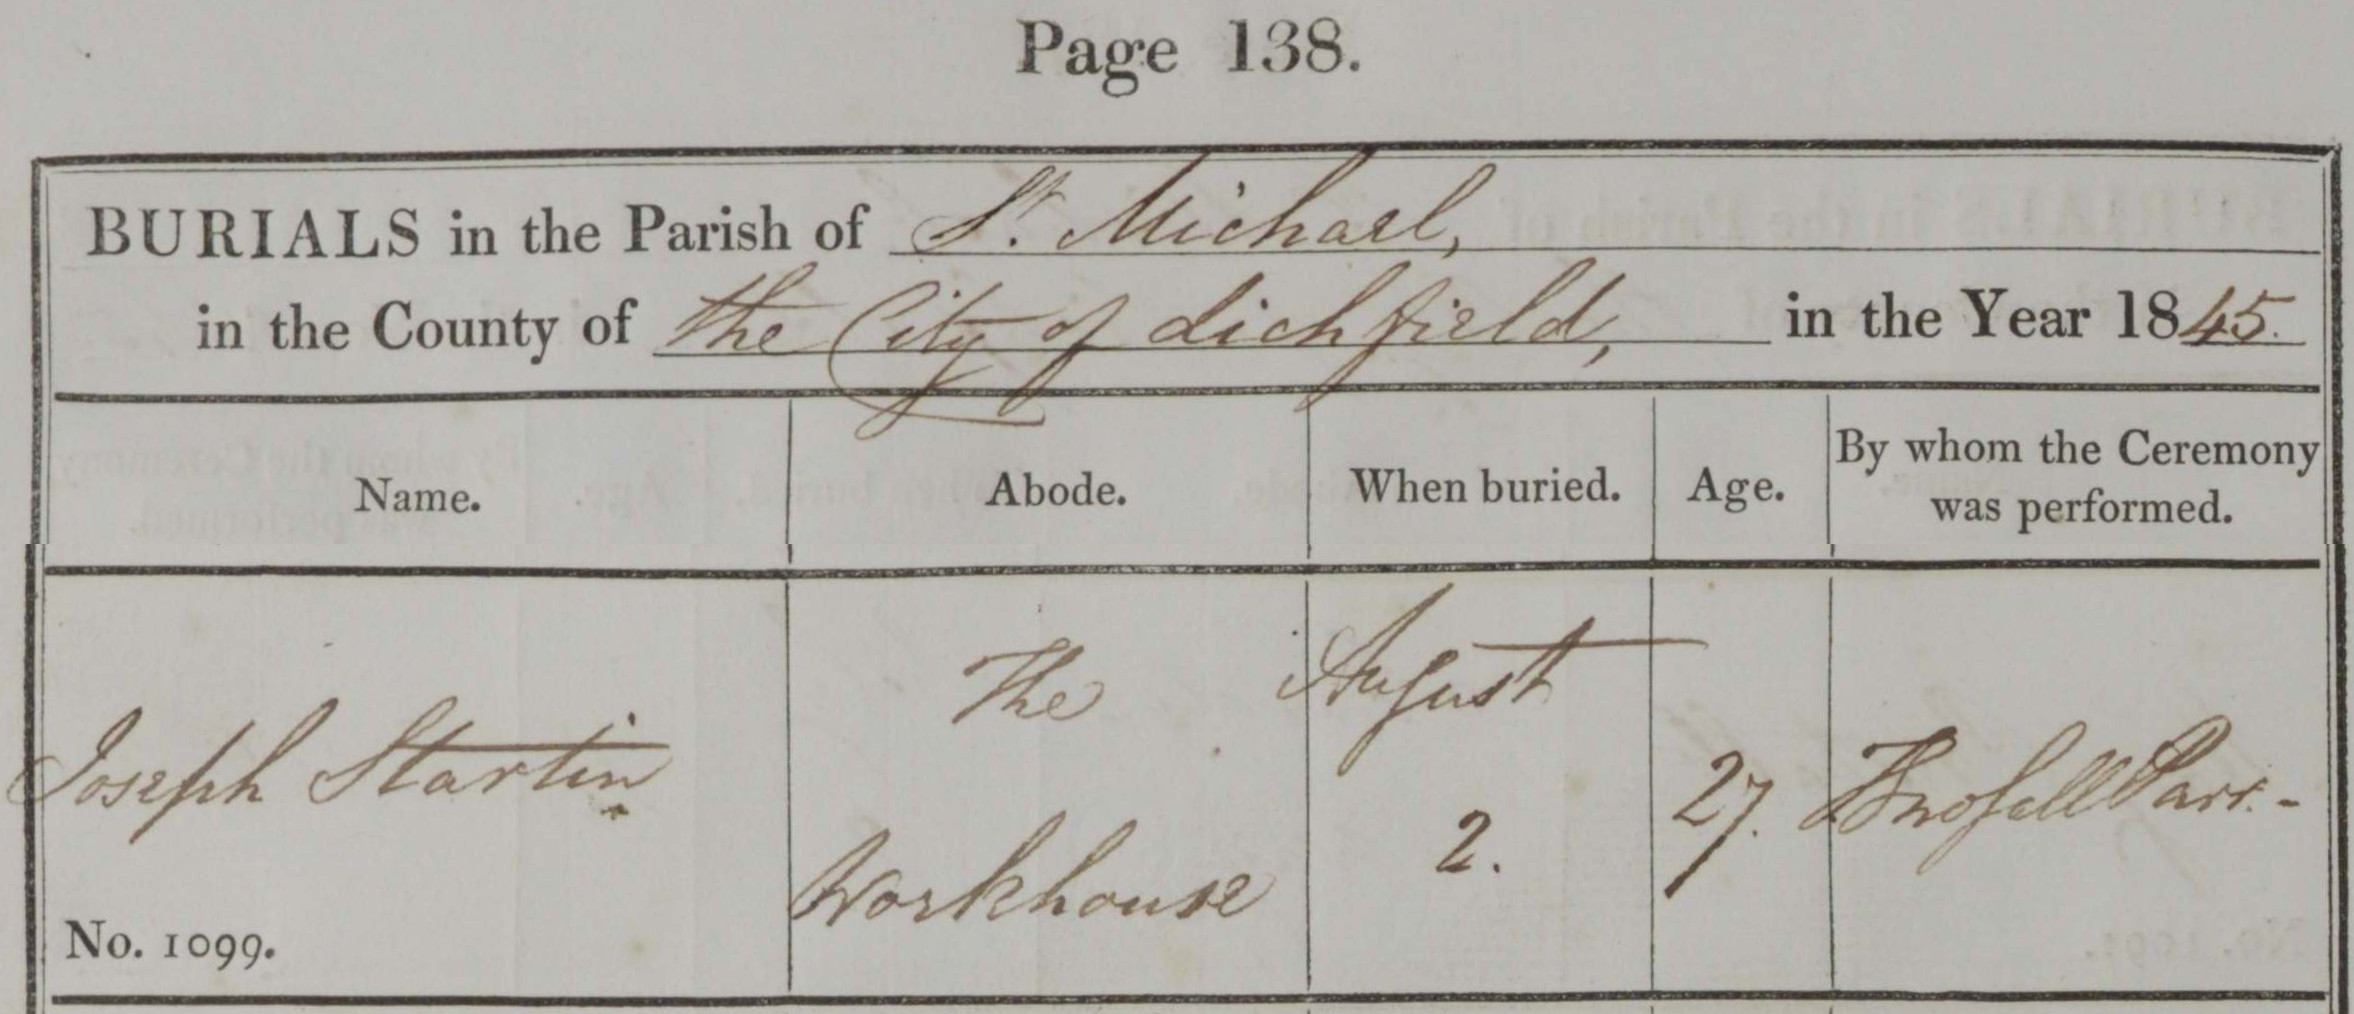 Page 138.
BURIALS in the Parish of St. Michael,
in the County of the City of Lichfield, in the Year 1845.
Name. Abode. When buried. Age. By whom the Ceremony was performed.
The August
Joseph Startin 27. Parr.-
Workhouse 2.
No. 1099.